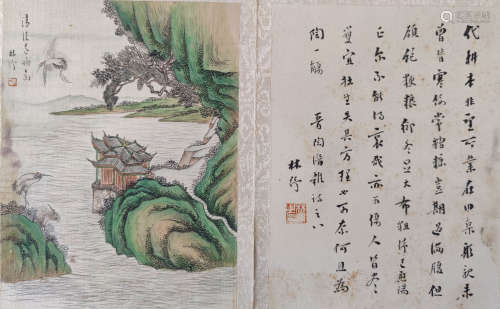 代耕本非望所業在田桑躬親未
曾替寒餒常糟糠豈期過滿腹但
願飽粳粮御冬足大布粗絺已應陽
正尔不能得哀哉亦可傷人皆盡
獲宜拙生失其方理也可奈何且為
陶一觴 晉陶潛雜詩之八
林紓
林紓